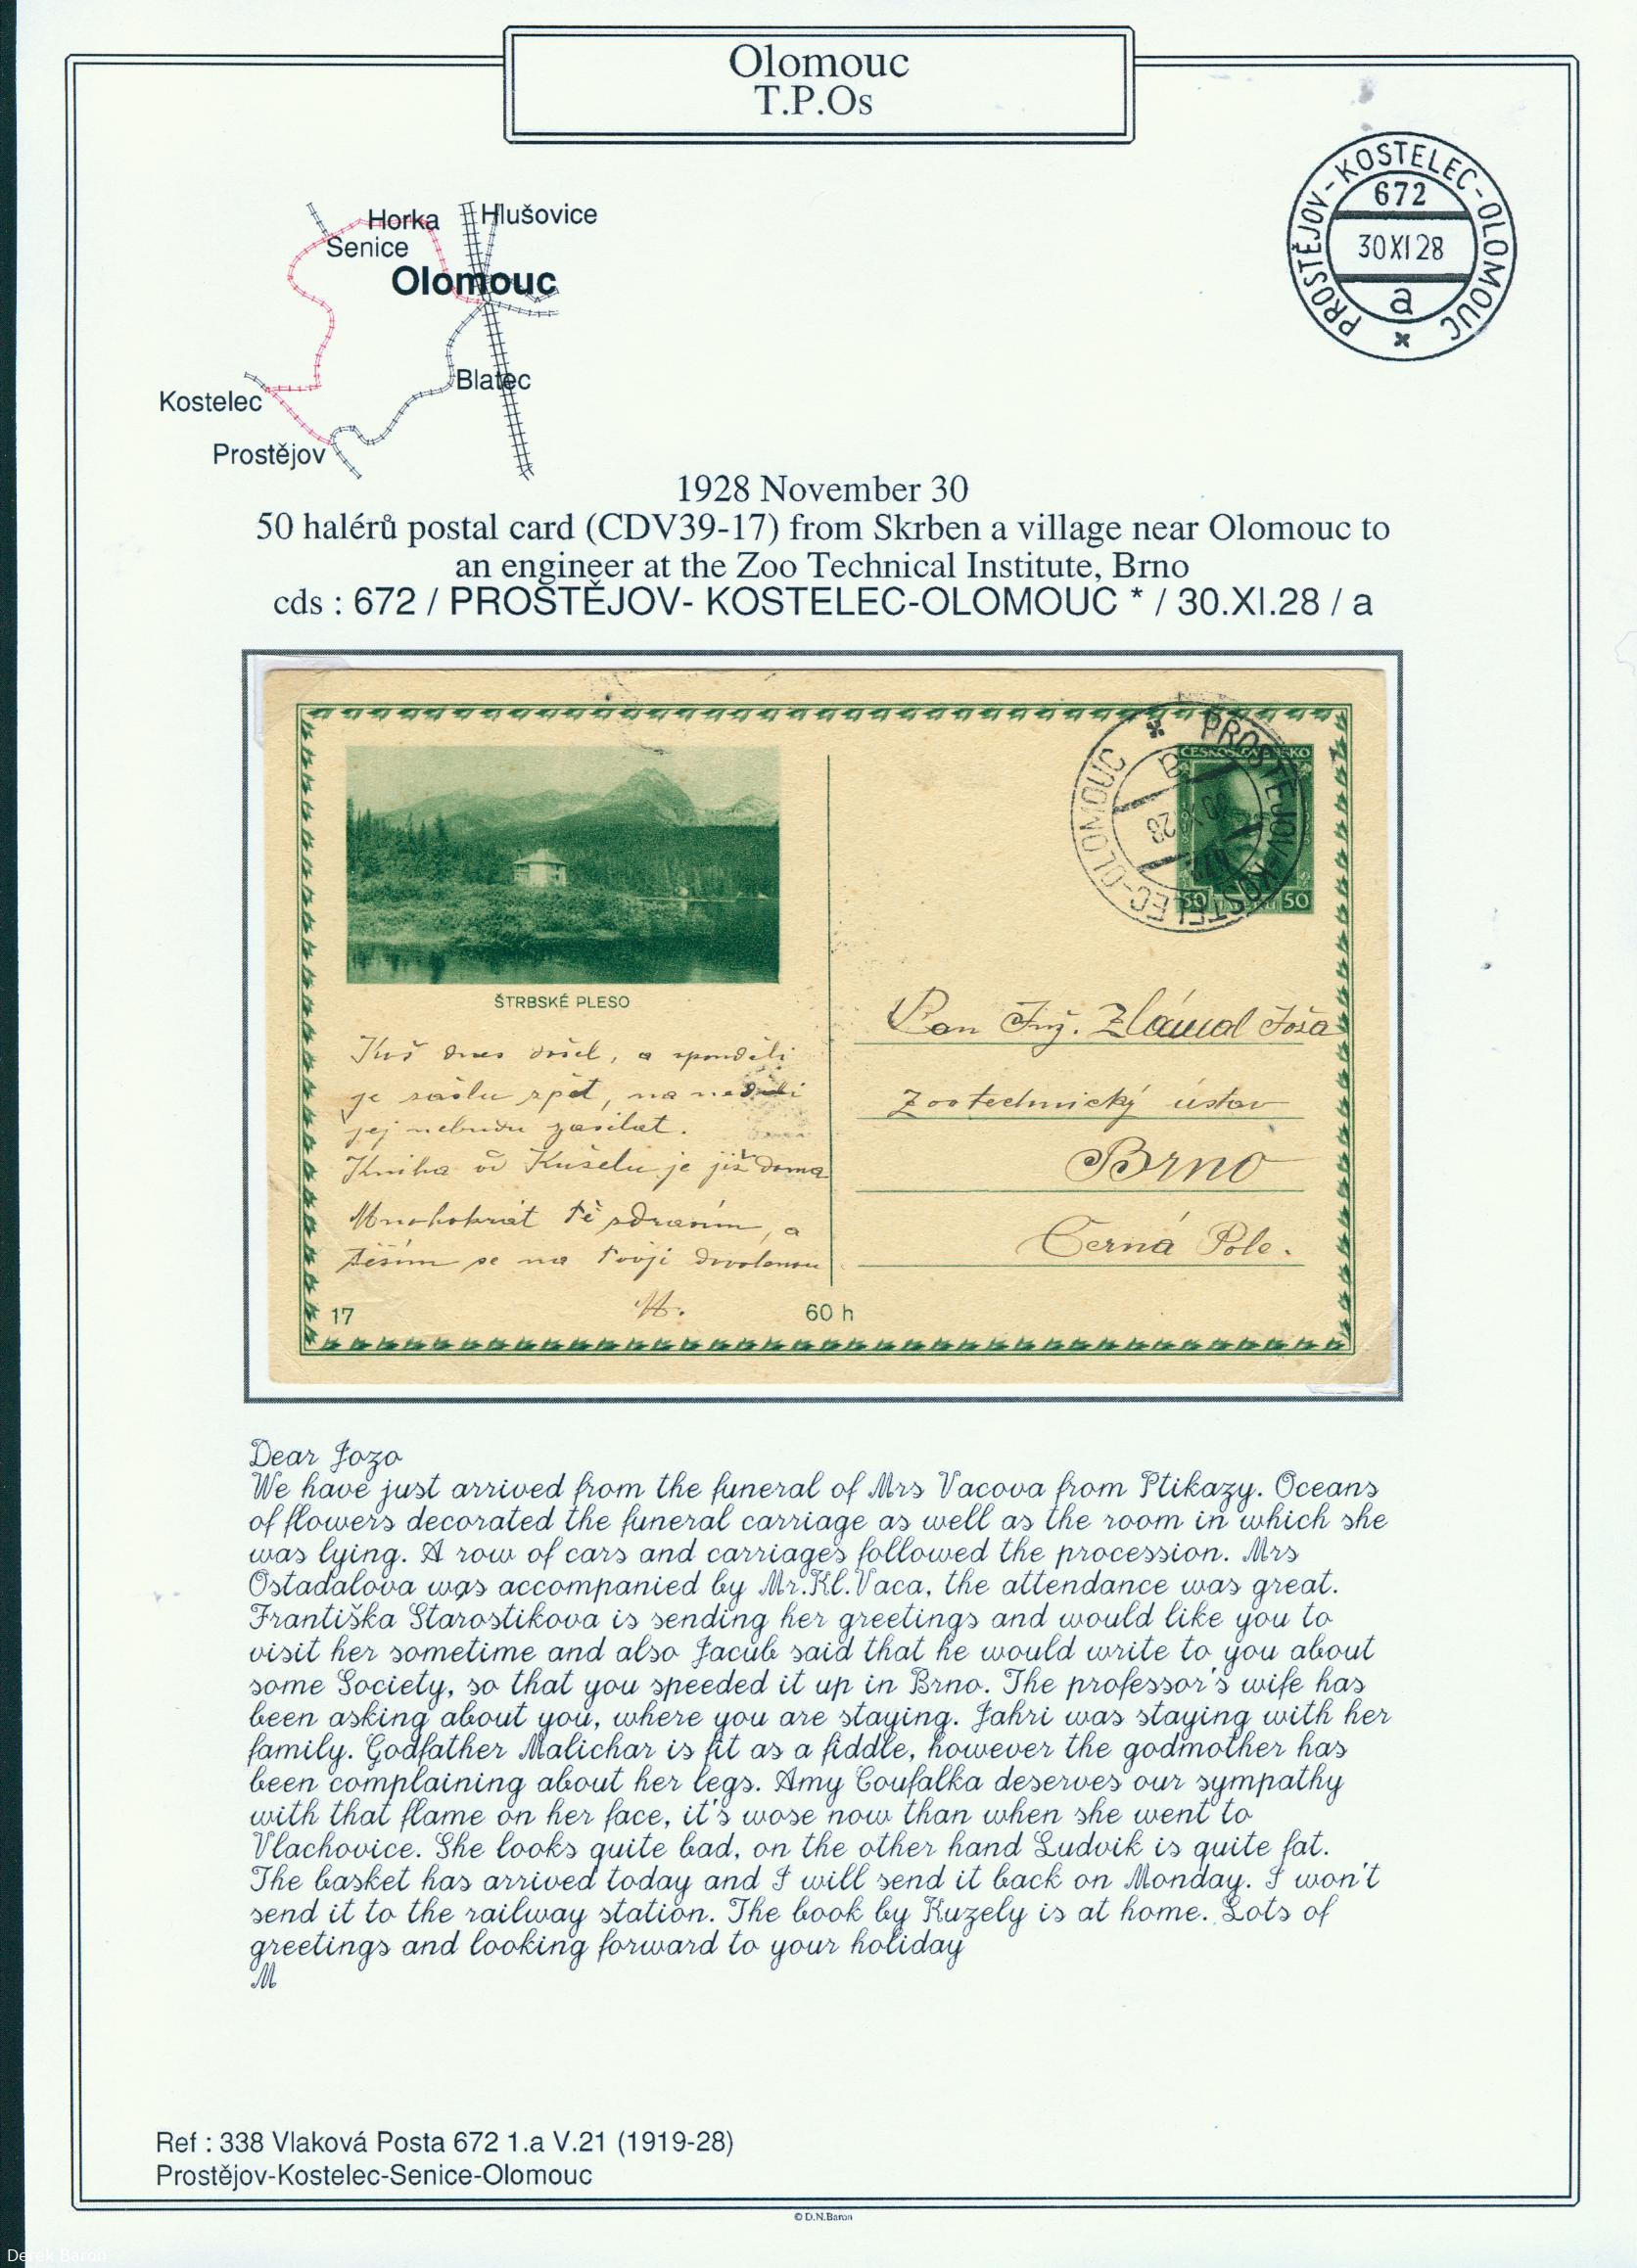 Olomouc
T.P.Os
PROSTĚJOV-KOSTELEC-OLOMOUC
672
30XI28
a
Horka
Hlušovice
Senice
Olomouc
Blatec
Kostelec
Prostějov
1928 November 30
50 halérů postal card (CDV39-17) from Skrben a village near Olomouc to
an engineer at the Zoo Technical Institute, Brno
cds : 672 / PROSTĚJOV- KOSTELEC-OLOMOUC * / 30.XI.28 / a
PROSTĚJOV-KOSTELEC-OLOMOUC
ČESKOSLOVENSKO
50 50
ŠTRBSKÉ PLESO
Koš dnes došel, a v pondělí
je zašlu zpět, na nádraží
jej nebudu zasílat.
Kniha od Kuželu je již doma
Mnohokrát Tě zdravím, a
těším se na Tvoji dovolenou
M.
17
60 h
Pan Inž. Zlámal Joža
Zootechnický ústav
Brno
Černá Pole.
Dear Jozo
We have just arrived from the funeral of Mrs Vacova from Ptikazy. Oceans
of flowers decorated the funeral carriage as well as the room in which she
was lying. A row of cars and carriages followed the procession. Mrs
Ostadalova was accompanied by Mr.Kl.Vaca, the attendance was great.
Františka Starostikova is sending her greetings and would like you to
visit her sometime and also Jacub said that he would write to you about
some Society, so that you speeded it up in Brno. The professor's wife has
been asking about you, where you are staying. Jahri was staying with her
family. Godfather Malichar is fit as a fiddle, however the godmother has
been complaining about her legs. Amy Coufalka deserves our sympathy
with that flame on her face, it's wose now than when she went to
Vlachovice. She looks quite bad, on the other hand Ludvik is quite fat.
The basket has arrived today and I will send it back on Monday. I won't
send it to the railway station. The book by Kuzely is at home. Lots of
greetings and looking forward to your holiday
M
Ref : 338 Vlaková Posta 672 1.a V.21 (1919-28)
Prostějov-Kostelec-Senice-Olomouc
© D.N.Baron
Derek Baron